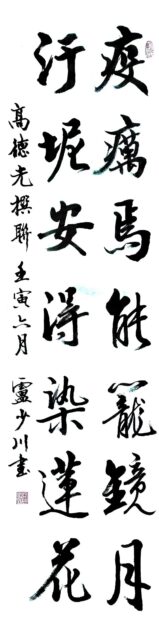 疫癘焉能籠鏡月
汙垢安得染蓮花
高德光撰聯 壬寅六月 盧少川書